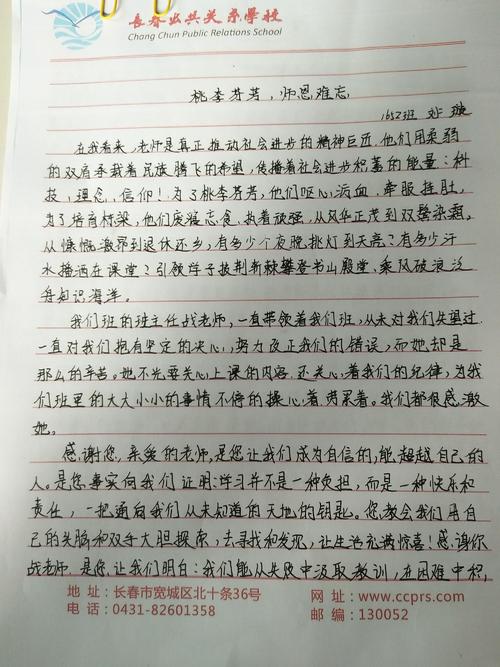 长春公共关系学校
Chang Chun Public Relations School
桃李芬芳，师恩难忘
1652班 孙 璇
在我看来，老师是真正推动社会进步的精神巨匠。他们用柔弱
的双肩承载着民族腾飞的希望，传播着社会进步积蓄的能量：科
技、理念、信仰！为了桃李芬芳，他们呕心沥血、牵肠挂肚，
为了培育栋梁，他们废寝忘食、执着顽强。从风华正茂到双鬓染霜。
从慷慨激昂到退休还乡，有多少个夜晚挑灯到天亮？有多少汗
水播洒在课堂？引领学子披荆斩棘攀登书山殿堂、乘风破浪泛
舟知识海洋。
我们班的班主任战老师，一直带领着我们班，从未对我们失望过
一直对我们抱有坚定的决心，努力改正我们的错误，而她却是
那么的辛苦。她不光要关心上课的内容，还关心着我们的纪律，为我
们班里的大大小小的事情不停的操心着，劳累着。我们都很感激
她。
感谢您，亲爱的老师，是您让我们成为自信的，能超越自己的
人。是您事实向我们证明：学习并不是一种负担，而是一种快乐和
责任，一把通向我们从未知道的天地的钥匙。您教会我们用自
己的头脑和双手大胆探索，去寻找和发现，让生活充满惊喜！感谢你
战老师，是您让我们明白：我们能从失败中汲取教训，在困难中积，
地 址：长春市宽城区北十条36号 网 址：www.ccprs.com
电 话：0431-82601358 邮 编：130052